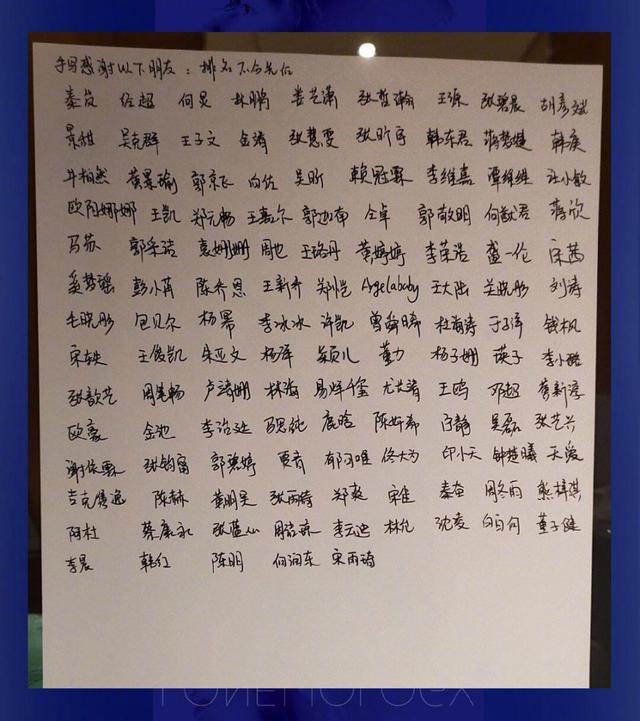 手写感谢以下朋友：排名不分先后
秦岚 经超 何炅 杜鹏 娄艺潇 张哲瀚 王源 张碧晨 胡彦斌
景甜 吴克群 王子文 金涛 张慧雯 张昕宇 韩东君 蒋梦婕 韩庚
牛柏然 黄景瑜 郭京飞 向佐 吴昕 赖冠霖 李维嘉 谭维维 汪小敏
欧阳娜娜 王凯 郑元畅 王嘉尔 郭迦南 仝卓 郭敬明 何猷君 蒋欣
马苏 郭采洁 袁姗姗 周也 王珞丹 黄婷婷 李荣浩 盛一伦 宋茜
奚梦瑶 彭小苒 陈乔恩 王新乔 郑恺 Agelababy 王大陆 关晓彤 刘涛
毛晓彤 包贝尔 杨幂 李冰冰 许凯 曾舜晞 杜海涛 于子洋 钱枫
宋轶 王俊凯 朱亚文 杨洋 颖儿 董力 杨子姗 瑛子 李小璐
张歆艺 周笔畅 卢靖姗 林海 易烊千玺 尤长靖 王鸥 邓超 黄新淳
欧豪 金池 李治廷 马思纯 鹿晗 陈妍希 白静 吴磊 张艺兴
谢依霖 张钧甯 郭碧婷 贾青 郁可唯 佟大为 印小天 钟楚曦 天爱
吉克隽逸 陈赫 黄明昊 张雨绮 郑爽 宋佳 秦奋 周冬雨 熊梓淇
阿杜 蔡康永 张蓝心 周洁琼 李云迪 林允 沈凌 白百何 董子健
李晨 韩红 陈明 何润东 宋雨琦